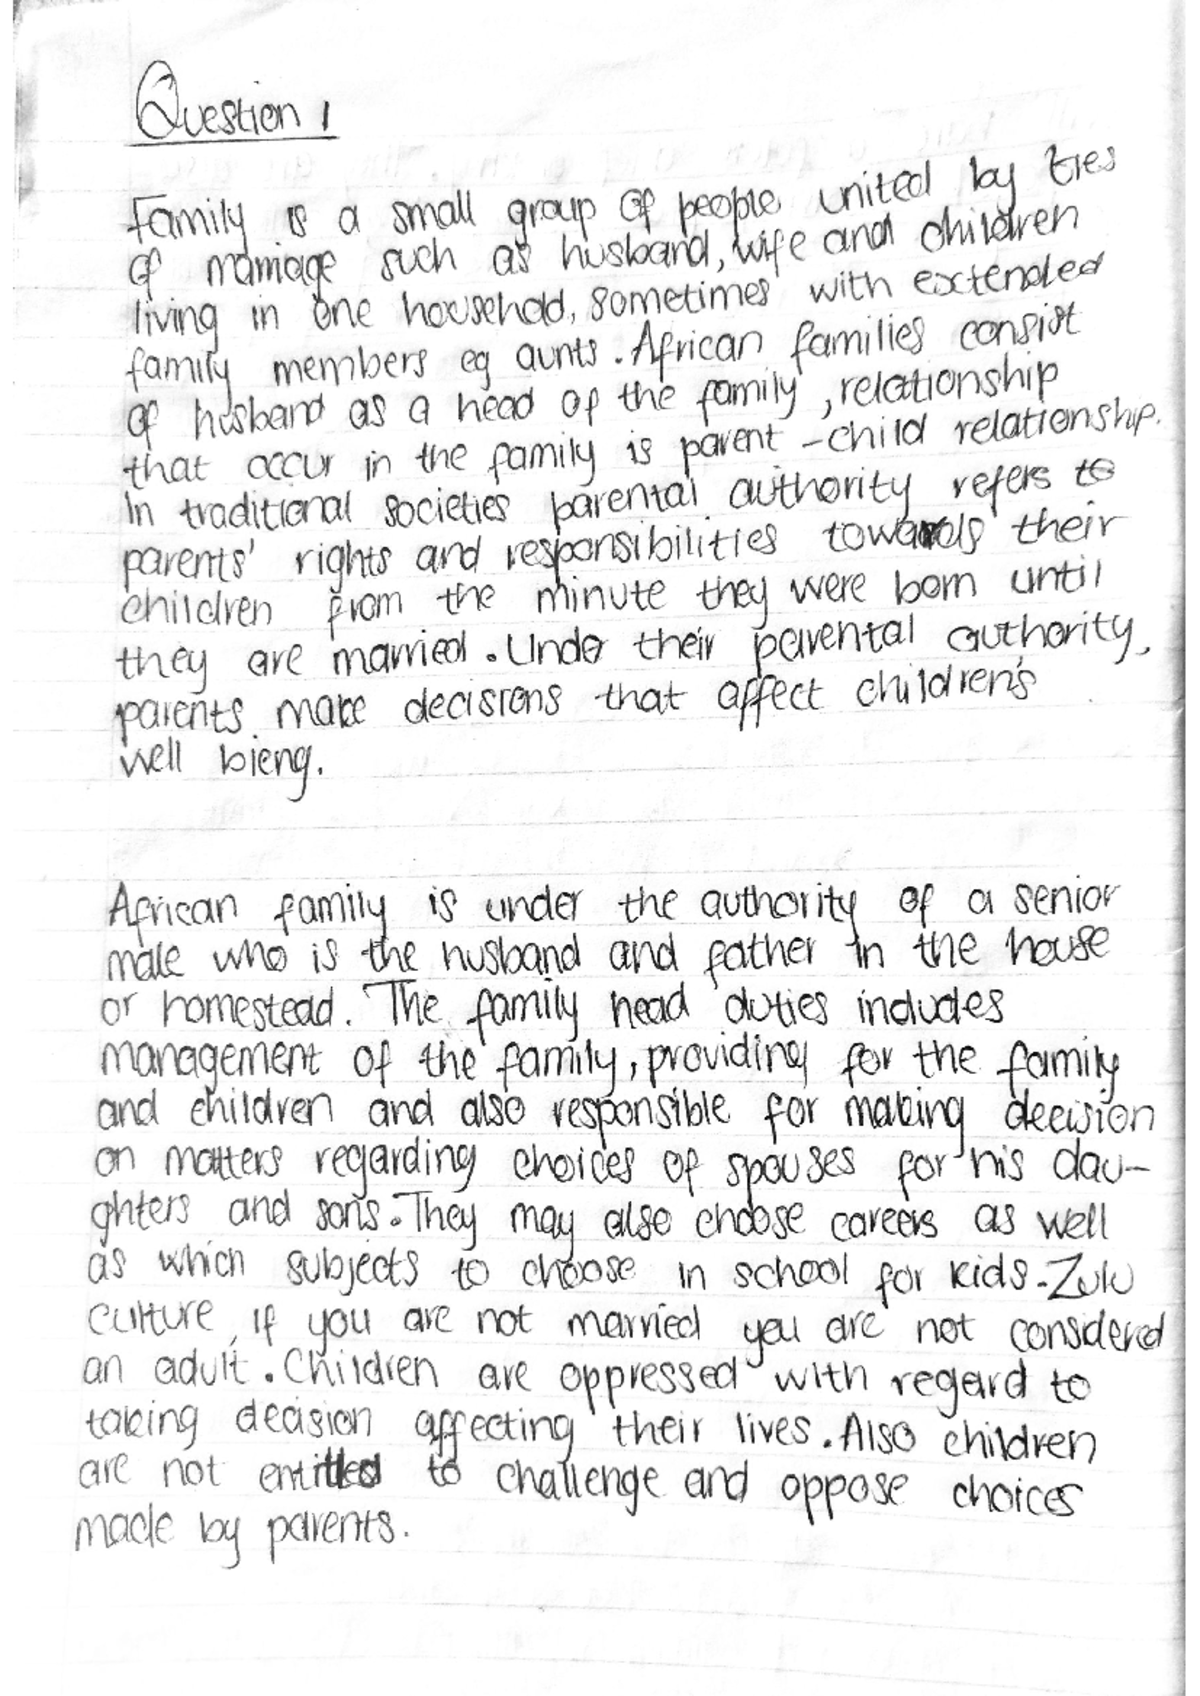 Question 1
Family is a small group of people united by ties
of marriage such as husband, wife and children
living in one household, sometimes with extended
family members eg aunts. African families consist
of husband as a head of the family, relationship
that occur in the family is parent-child relationship.
In traditional societies parental authority refers to
parents' rights and responsibilities towards their
children from the minute they were born until
they are married. Under their parental authority,
parents make decisions that affect children's
well bieng.
African family is under the authority of a senior
male who is the husband and father in the house
or homestead. The family head duties includes
management of the family, providing for the family
and children and also responsible for making decision
on matters regarding choices of spouses for his dau-
ghters and sons. They may also choose careers as well
as which subjects to choose in school for kids. Zulu
culture, if you are not married you are not considered
an adult. Children are oppressed with regard to
taking decision affecting their lives. Also children
are not entitled to challenge and oppose choices
made by parents.